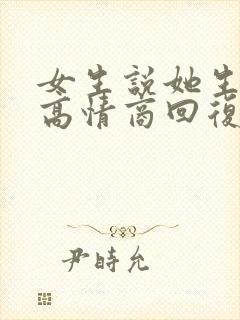 女生說她生
高情商回復
尹時允